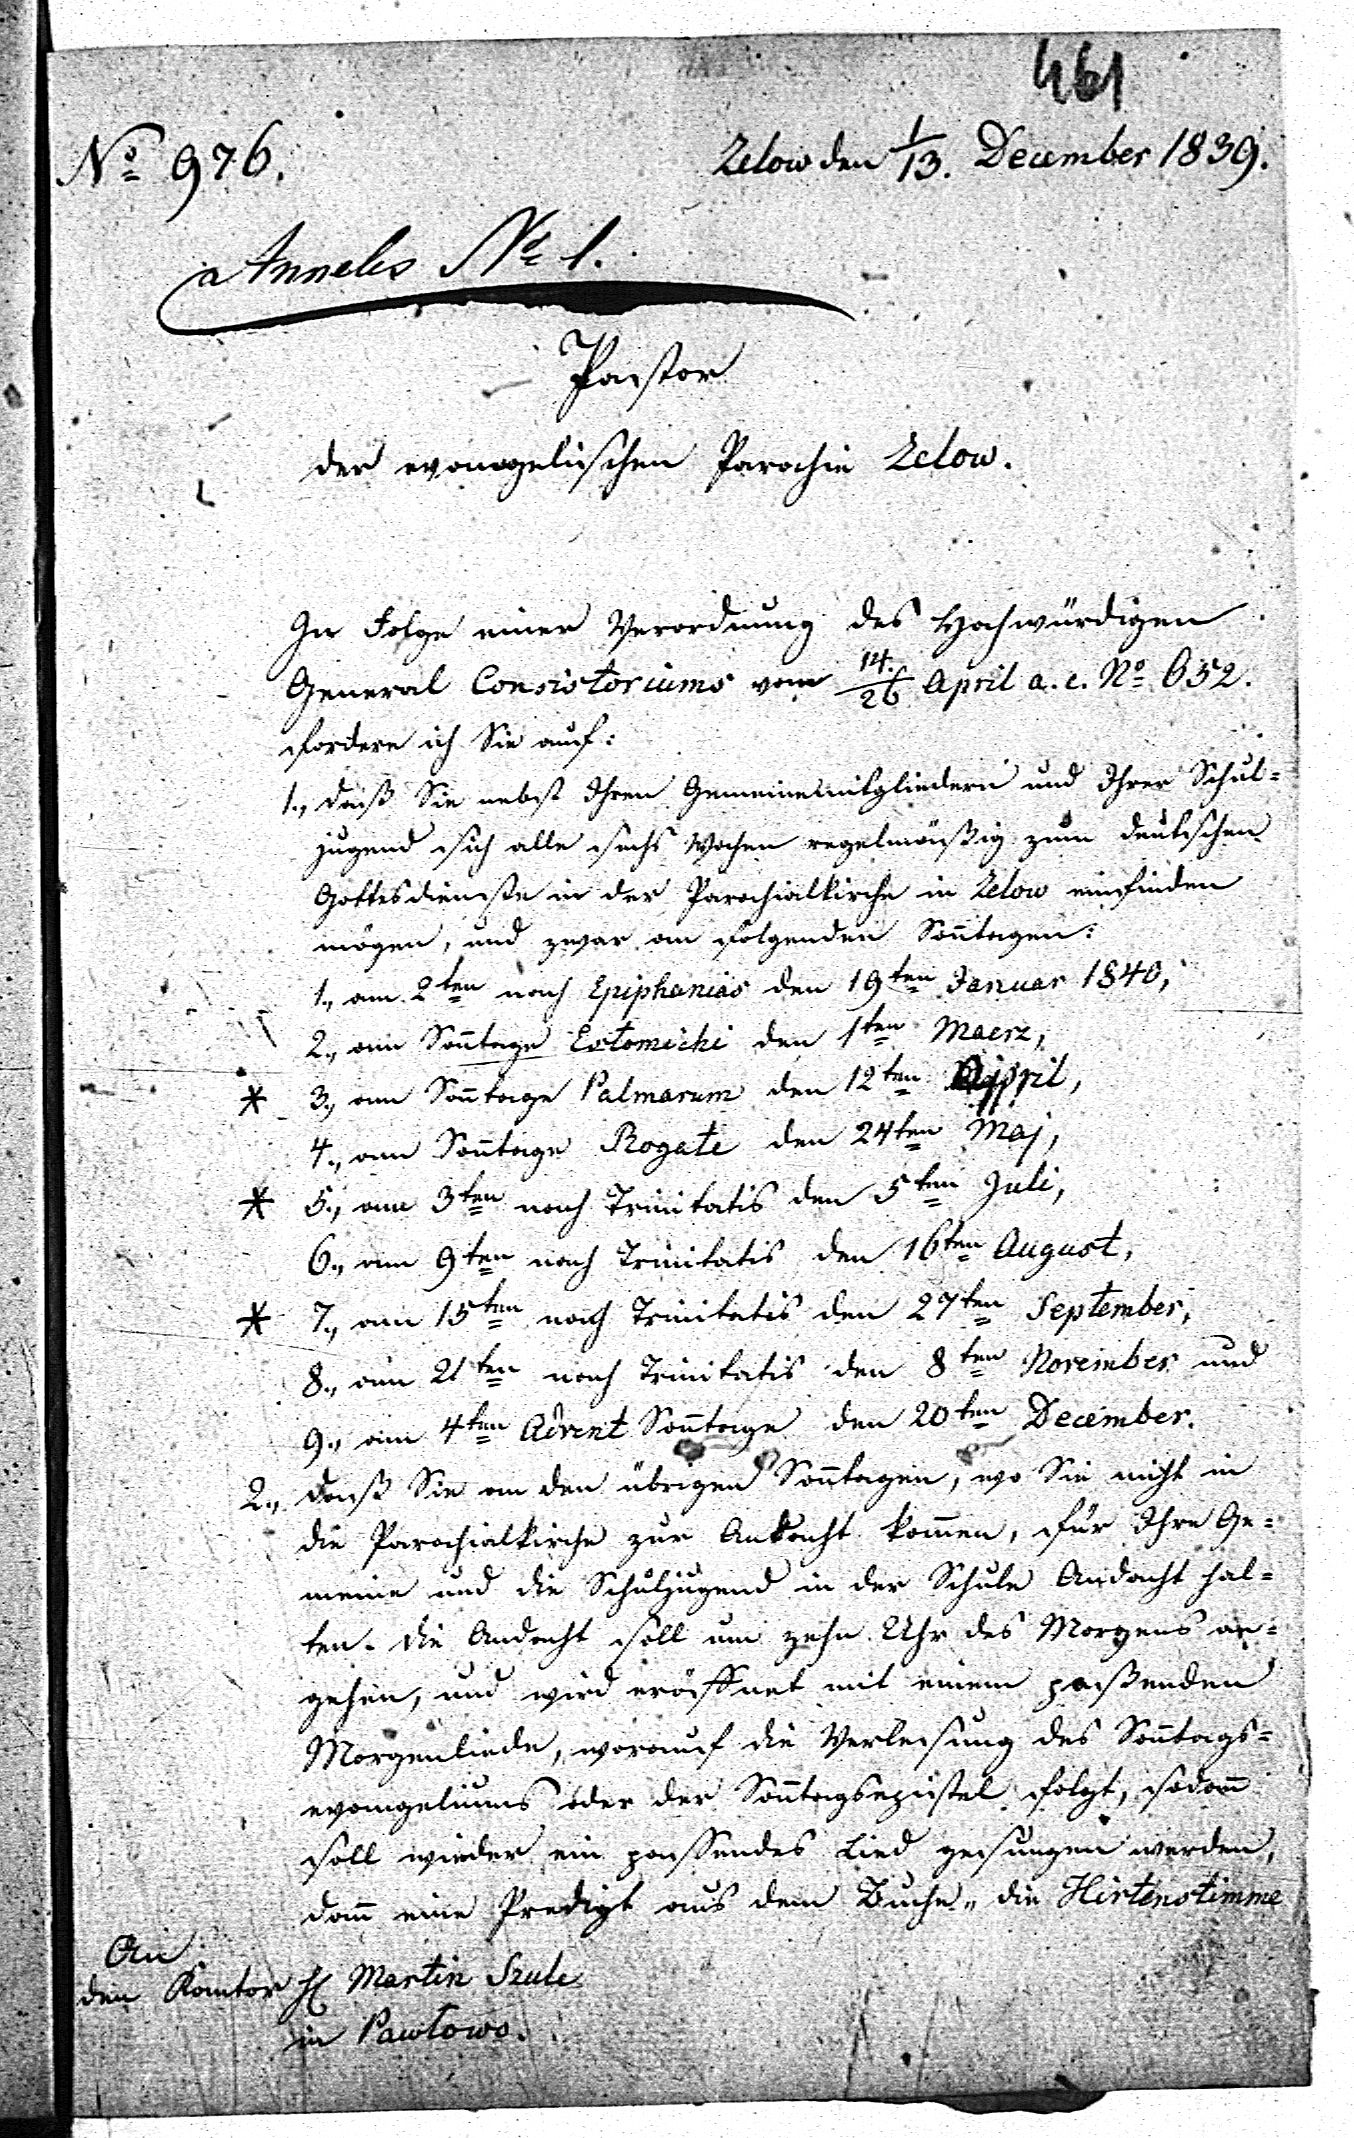 461
No 976.
Zelow den 1/13. December 1839.
a Annels No 1.
Pastor
der evangelischen Parochie Zelow.
In Folge einer Verordnung des Hochwürdigen
General Consistoriums vom 14./26 April a. c. No 652.
fordere ich Sie auf:
1., daß Sie nebst Ihren Gemeinemitgliedern und Ihrer Schul=
jugend sich alle sechs Wochen regelmäßig zum deutschen
Gottesdienste in der Parochialkirche in Zelow einfinden
mögen, und zwar an folgenden Soñtagen:
1., am 2ten nach Epiphanias den 19ten Januar 1840,
2., am Soñtage Estomichi den 1ten Maerz,
* 3., am Soñtage Palmarum den 12ten April,
4., am Soñtage Rogate den 24ten Maj,
* 5., am 3ten nach Trinitatis den 5ten Juli,
6., am 9ten nach Trinitatis den 16ten August,
* 7., am 15ten nach Trinitatis den 27ten September,
8., am 21ten nach Trinitatis den 8ten November und
9., am 4ten Advent Soñtage den 20ten December.
2., daß Sie an den übrigen Soñtagen, wo Sie nicht in
die Parochialkirche zur Andacht kom̃en, für Ihre Ge=
meine und die Schuljugend in der Schule Andacht hal=
ten. Die Andacht soll um zehn Uhr des Morgens an=
gehen, und wird eröffnet mit einem paßenden
Morgenliede, worauf die Verlesung des Soñtags=
evangeliums oder der Soñtagsepistel folgt, sodañ
soll wieder ein passendes Lied gesungen werden,
dañ eine Predigt aus dem Buche „die Hirtenstimme
An
den Kantor H Martin Szulc
in Pawłowo.